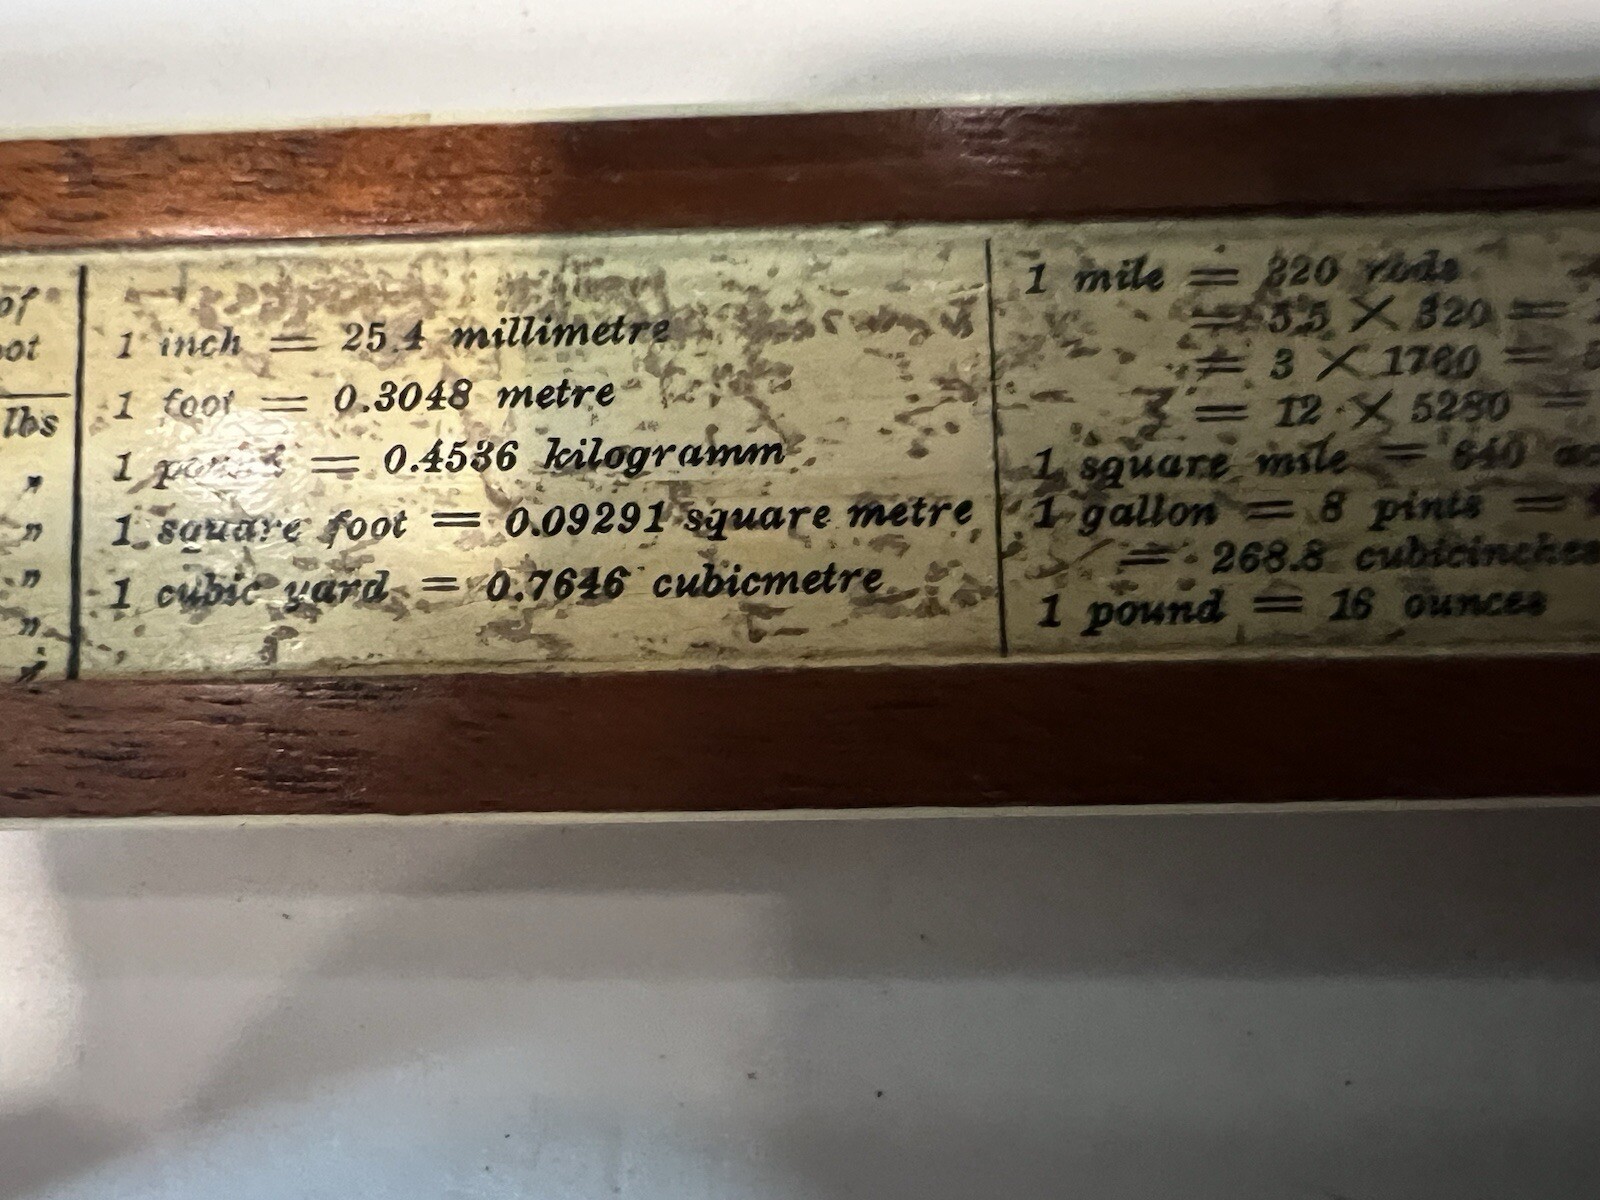 of
oot
lbs
"
"
"
"
"
1 inch = 25.4 millimetre
1 foot = 0.3048 metre
1 pound = 0.4536 kilogramm
1 square foot = 0.09291 square metre
1 cubic yard = 0.7646 cubicmetre
1 mile = 320 rods
= 5.5 × 320 =
= 3 × 1760 = 5
= 12 × 5280 =
1 square mile = 640 ac
1 gallon = 8 pints =
= 268.8 cubicinches
1 pound = 16 ounces